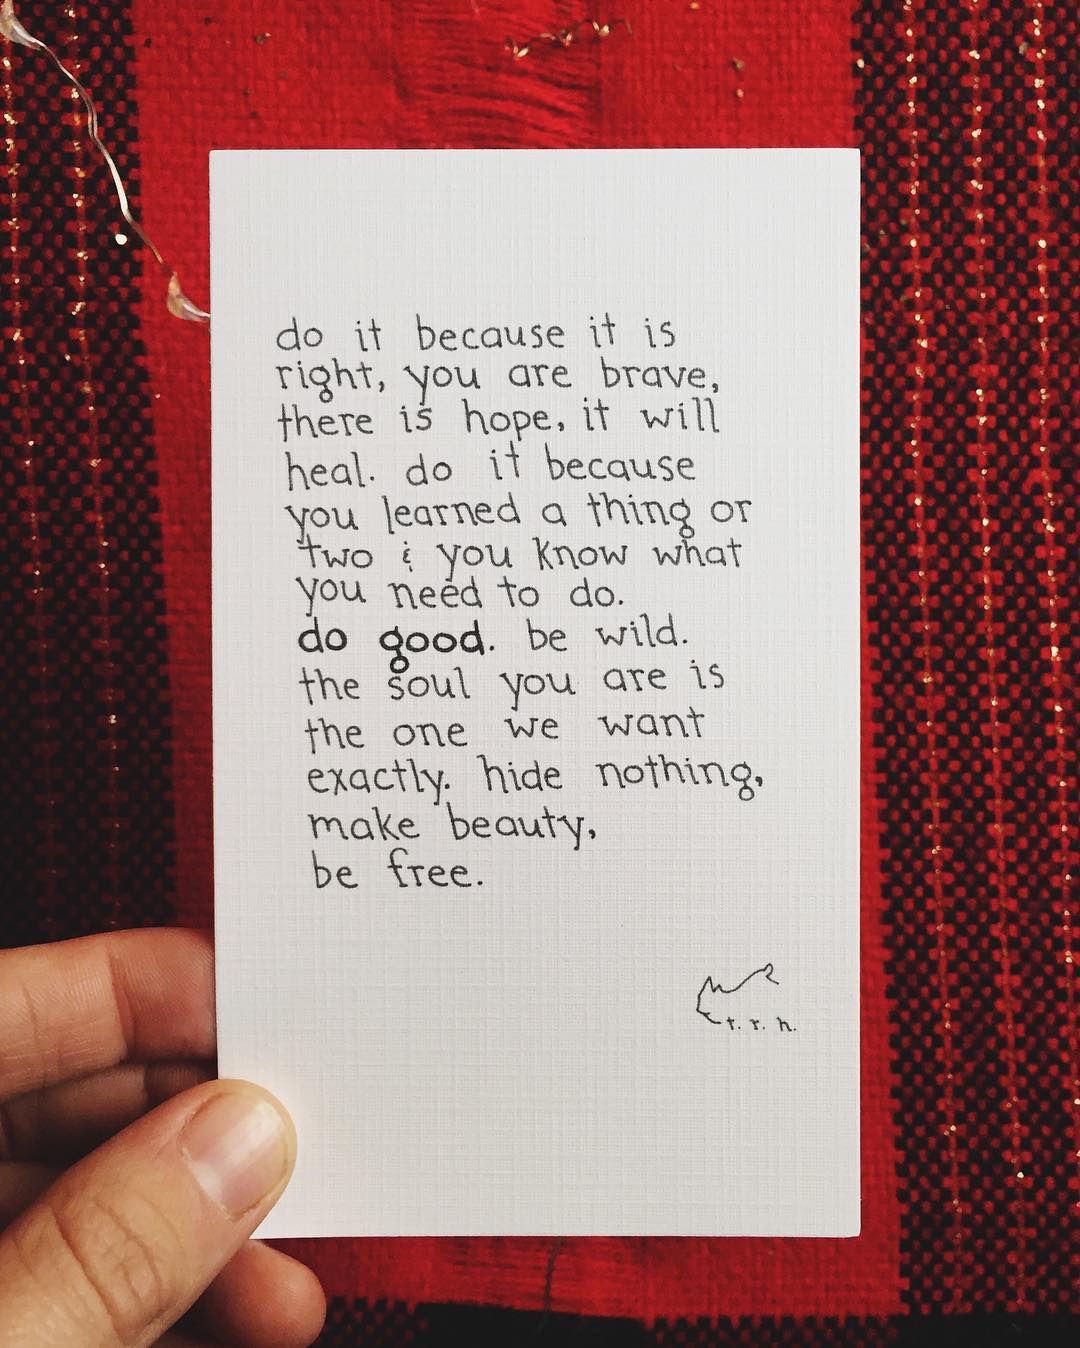 do it because it is
right, you are brave,
there is hope, it will
heal. do it because
you learned a thing or
two & you know what
you need to do.
do good. be wild.
the soul you are is
the one we want
exactly. hide nothing,
make beauty,
be free.
t. r. h.